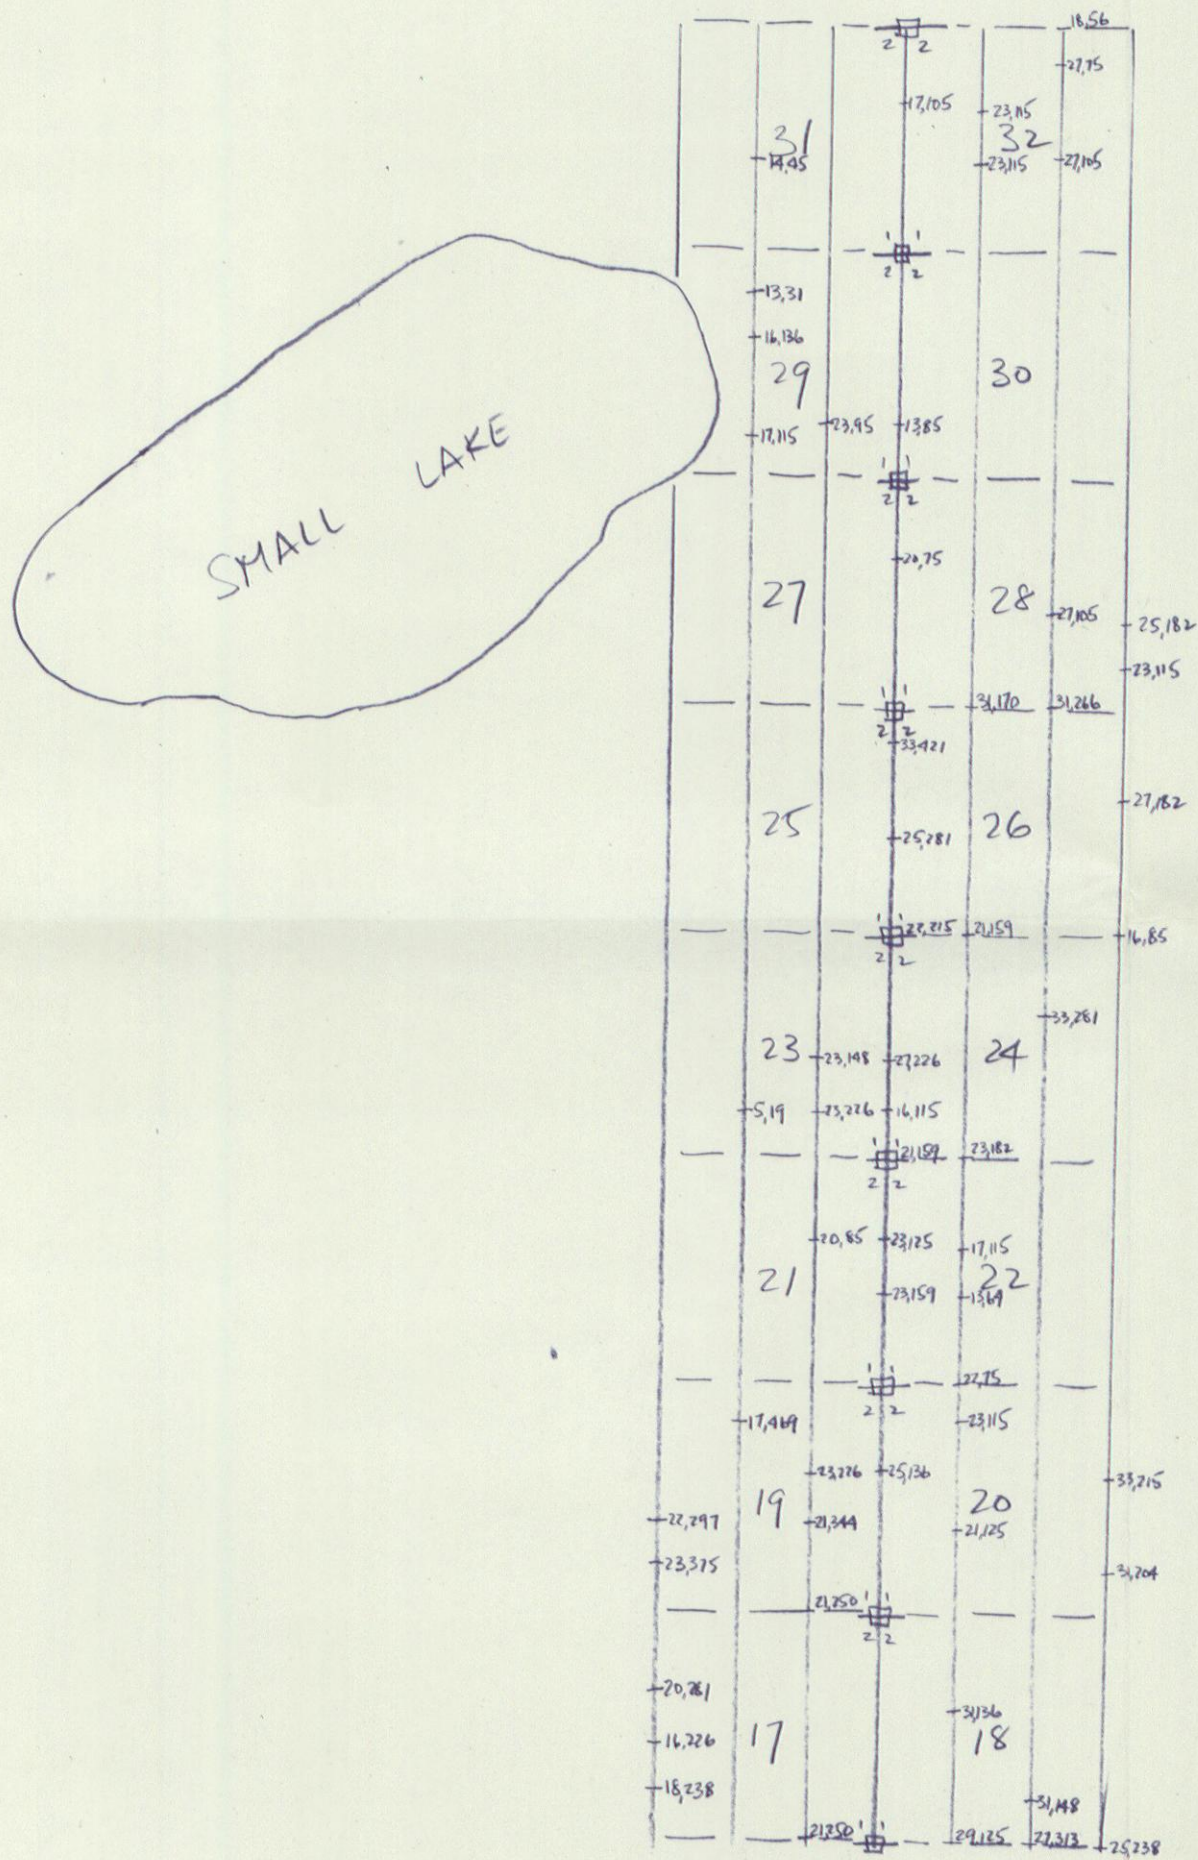 18,56
2 2
27,75
17,105
23,115
31
32
14,45
23,115
27,105
1 1
2 2
13,31
16,136
29
30
23,95
13,85
17,115
1 1
2 2
20,75
27
28
27,105
25,182
23,115
1 1
31,170
31,266
2 2
33,421
27,182
25
26
25,281
1 1
22,215
21,159
16,85
2 2
33,281
23
23,148
27,226
24
5,19
23,226
16,115
1 1
21,159
23,182
2 2
20,85
23,125
17,115
21
22
23,159
13,69
1 1
27,75
2 2
17,469
23,115
23,226
25,136
33,215
19
20
22,297
21,344
21,125
23,375
31,204
21,250
1 1
2 2
20,281
31,136
16,226
17
18
18,238
31,148
21,250
1 1
29,125
27,313
25,238
SMALL LAKE